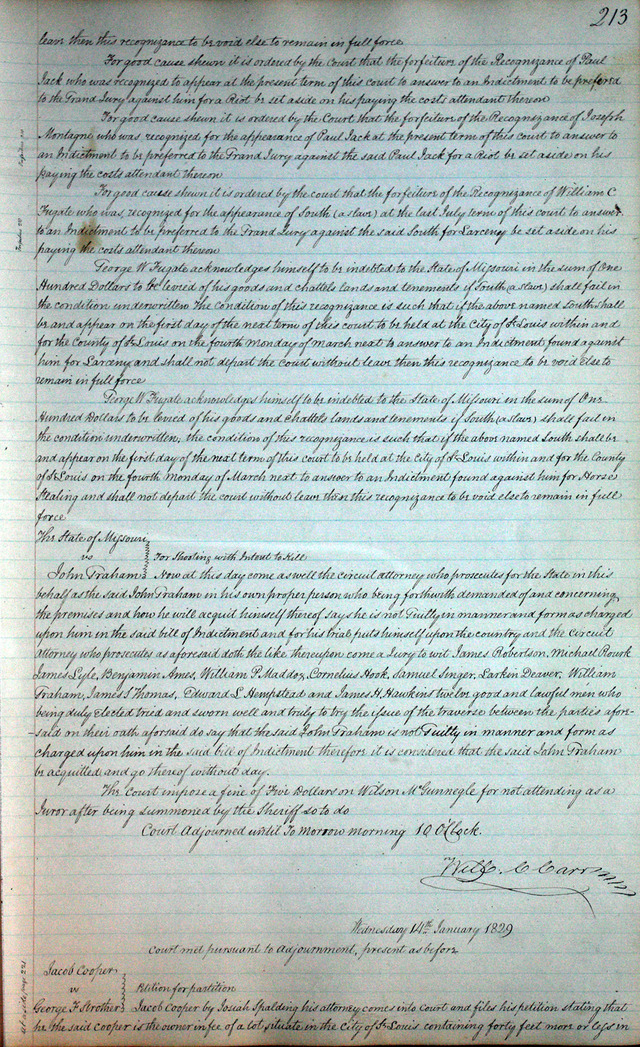 213
leave then this recognizance to be void else to remain in full force
For good cause shewn it is ordered by the Court that the forfeiture of the Recognizance of Paul
Jack who was recognized to appear at the present term of this court to answer to an Indictment to be prefered
to the Grand Jury against him for a Riot be set aside on his paying the costs attendant thereon
For good cause shewn it is ordered by the Court that the forfeiture of the Recognizance of Joseph
Montagne who was recognized for the appearance of Paul Jack at the present term of this court to answer to
an Indictment to be preferred to the Grand Jury against the said Paul Jack for a Riot be set aside on his
paying the costs attendant thereon
For good cause shewn it is ordered by the court that the forfeiture of the Recognizance of William C
Fugate who was recognized for the appearance of South (a slave) at the last July term of this court to answer
to an Indictment to be preferred to the Grand Jury against the said South for Larceny be set aside on his
paying the costs attendant thereon
George W Fugate acknowledges himself to be indebted to the State of Missouri in the sum of One
Hundred Dollars to be levied of his goods and chattels lands and tenements if South (a slave) shall fail in
the condition underwritten The condition of this recognizance is such that if the above named South shall
be and appear on the first day of the next term of this court to be held at the City of St Louis within and
for the County of St Louis on the fourth Monday of March next to answer to an Indictment found against
him for Larceny and shall not depart the Court without leave then this recognizance to be void else to
remain in full force
George W Fugate acknowledges himself to be indebted to the State of Missouri in the sum of One
Hundred Dollars to be levied of his goods and chattels lands and tenements if South (a slave) shall fail in
the condition underwritten, the condition of this recognizance is such that if the above named South shall be
and appear on the first day of the next term of this court to be held at the City of St Louis within and for the County
of St Louis on the fourth Monday of March next to answer to an Indictment found against him for Horse
Stealing and shall not depart the court without leave then this recognizance to be void else to remain in full
force
The State of Missouri
vs
For Shooting with Intent to Kill
John Graham
Now at this day come as well the circuit attorney who prosecutes for the State in this
behalf as the said John Graham in his own proper person who being forthwith demanded of and concerning
the premises and how he will acquid himself thereof say he is not Guilty in manner and form as charged
upon him in the said bill of Indictment and for his trial puts himself upon the country and the Circuit
Attorney who prosecutes as aforesaid doth the like thereupon come a Jury to wit James Robertson, Michael Rourk
James Lyle, Benjamin Ames, William P. Maddox, Cornelius Hook, Samuel Singer, Larkin Deaver, William
Graham, James S Thomas, Edward L. Hempstead and James H. Hawkins twelve good and lawful men who
being duly elected tried and sworn well and truly to try the issue of the traverse between the parties afor-
said on their oath aforsaid do say that the said John Graham is not Guilty in manner and form as
charged upon him in the said bill of Indictment therefore it is considered that the said John Graham
be acquitted and go thereof without day.
The Court impose a fine of Five Dollars on Wilson McGunnegle for not attending as a
Juror after being summoned by the Sheriff so to do
Court Adjourned until To Morrow morning 10 O'Clock.
Will. C Carr
Wednesday 14th January 1829
Court met pursuant to Adjournment, present as before
Jacob Cooper
vs
Petition for partition
George F Strother
Jacob Cooper by Josiah Spalding his attorney comes into Court and files his petition stating that
he the said cooper is the owner in fee of a lot, situate in the City of St Louis containing forty feet more or less in